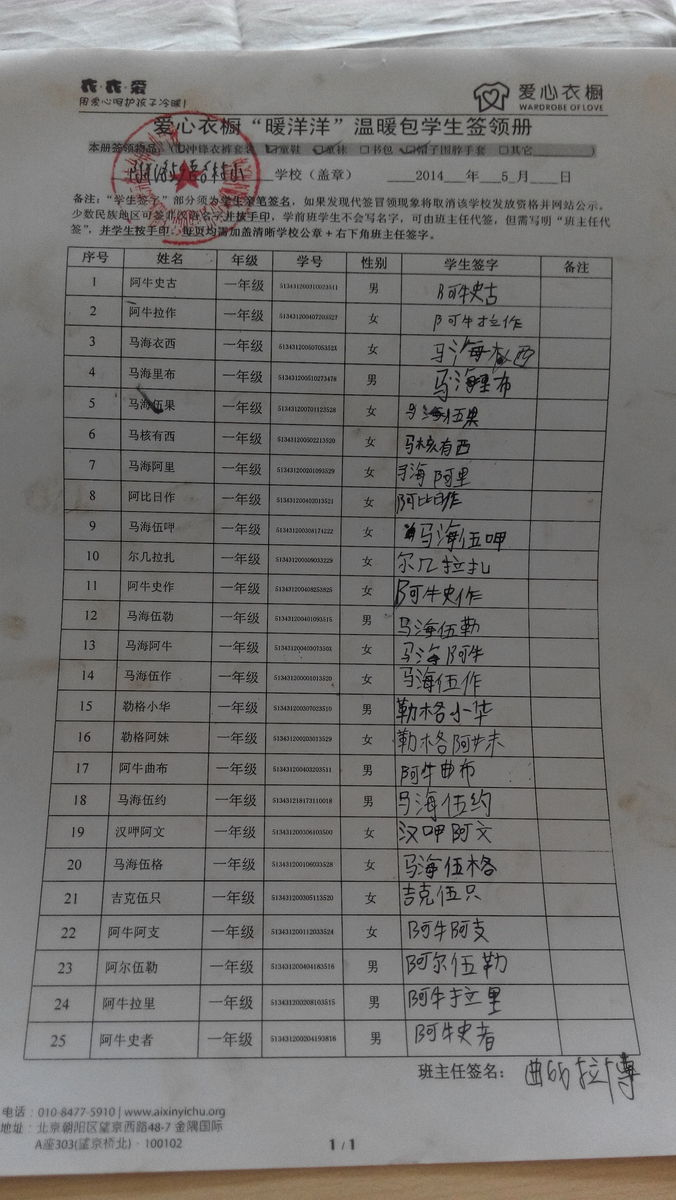 衣·衣·爱
用爱心呵护孩子冷暖!
爱心衣橱
WARDROBE OF LOVE
爱心衣橱“暖洋洋”温暖包学生签领册
本册签领物品:(☑冲锋衣裤套装 ☑童鞋 ☑童袜 □书包 ☑帽子围脖手套 □其它
学校(盖章) 2014 年 5 月 日
备注:“学生签字”部分须为学生亲笔签名,如果发现代签冒领现象将取消该学校发放资格并网站公示。
少数民族地区可签非汉语名字并按手印,学前班学生不会写名字,可由班主任代签,但需写明“班主任代
签”,并学生按手印。每页均需加盖清晰学校公章+右下角班主任签字。
序号 姓名 年级 学号 性别 学生签字 备注
1 阿牛史古 一年级 男 阿牛史古
2 阿牛拉作 一年级 513431200407203527 女 阿牛拉作
3 马海衣西 一年级 51343120050705352X 女 马海衣西
4 马海里布 一年级 513431200510273478 男 马海里布
5 马海伍果 一年级 513431200701123528 女 马海伍果
6 马核有西 一年级 513431200502213520 女 马核有西
7 马海阿里 一年级 513431200201093529 女 马海阿里
8 阿比日作 一年级 513431200402013521 女 阿比日作
9 马海伍呷 一年级 513431200308174222 女 马海伍呷
10 尔几拉扎 一年级 513431200309033229 女 尔几拉扎
11 阿牛史作 一年级 513431200408253825 女 阿牛史作
12 马海伍勒 一年级 513431200401093515 男 马海伍勒
13 马海阿牛 一年级 51343120040307350X 女 马海阿牛
14 马海伍作 一年级 513431200001013520 女 马海伍作
15 勒格小华 一年级 513431200307023510 男 勒格小华
16 勒格阿妹 一年级 513431200203013529 女 勒格阿妹
17 阿牛曲布 一年级 513431200403203511 男 阿牛曲布
18 马海伍约 一年级 513431218173110018 男 马海伍约
19 汉呷阿文 一年级 513431200306103500 女 汉呷阿文
20 马海伍格 一年级 513431200106033528 女 马海伍格
21 吉克伍只 一年级 513431200305113520 女 吉克伍只
22 阿牛阿支 一年级 513431200112033524 女 阿牛阿支
23 阿尔伍勒 一年级 513431200404183516 男 阿尔伍勒
24 阿牛拉里 一年级 513431200208103515 男 阿牛拉里
25 阿牛史者 一年级 513431200204193816 男 阿牛史者
班主任签名: 曲 拉博
电话:010-8477-5910 | www.aixinyichu.org
地址:北京朝阳区望京西路48-7 金隅国际
A座303(望京桥北)· 100102
1 / 1